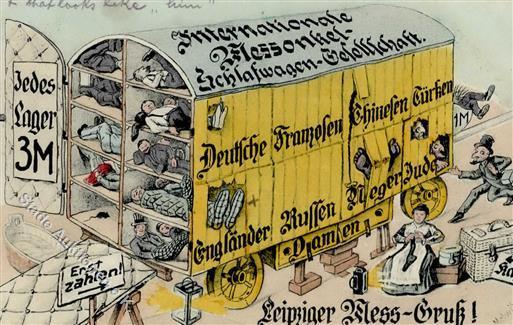 + that looks like "him"
Internationale
Messonkel-
Schlafwagen-Gesellschaft.
Jedes
Lager
3M
Deutsche Franzosen Chinesen Türken
1M
Engländer Russen Neger Jude
Damen
Erst
zahlen!
Leipziger Mess-Gruß!